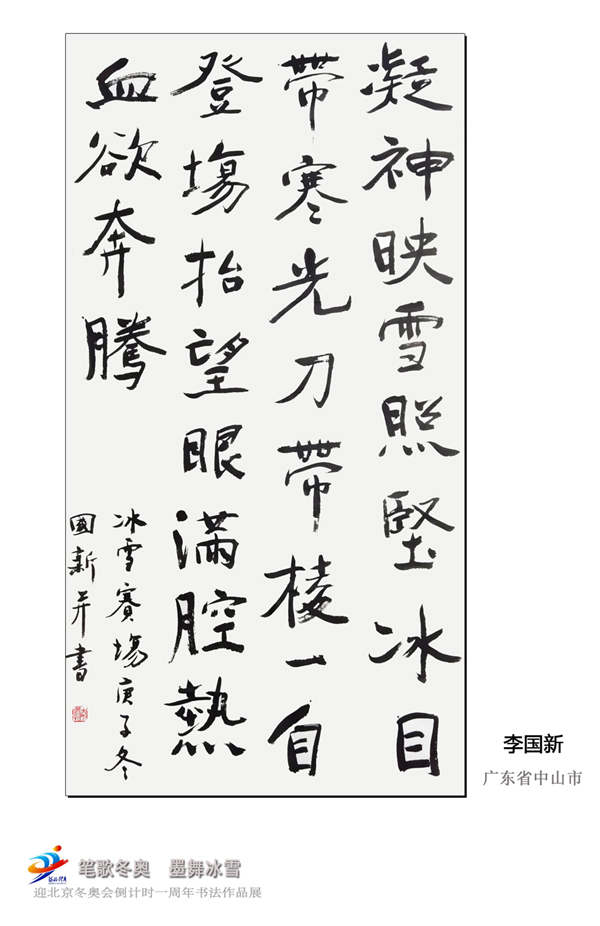 凝神映雪照堅冰目
帶寒光刀帶棱一自
登場抬望眼滿腔熱
血欲奔騰
冰雪賽場庚子冬
國新并書
李国新
广东省中山市
笔歌冬奥 墨舞冰雪
迎北京冬奥会倒计时一周年书法作品展